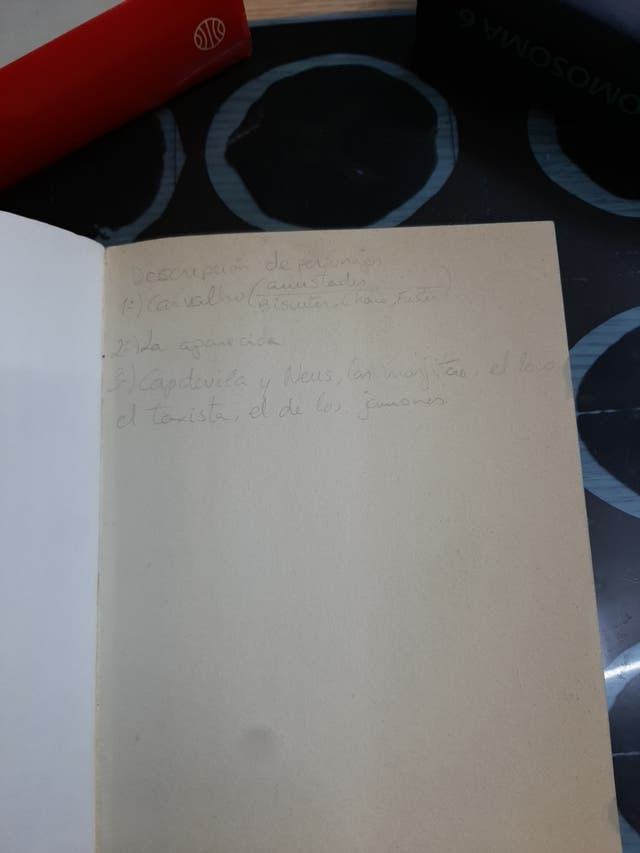 OMOSOMA 6
Descripción de personajes
1º) Carvalho (amistades
Biscuter, Charo, Fuster)
2º) La aparecida
3º) Capdevila y Neus, las monjitas, el loco
el taxista, el de los jamones.